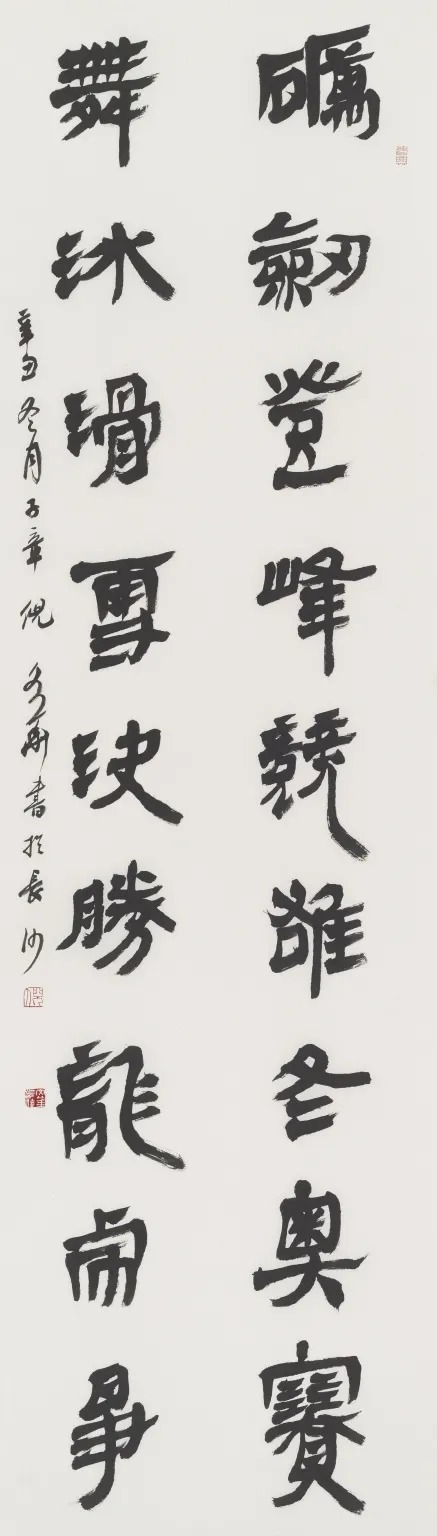 礪劔登峰競雄冬奧賽
舞冰滑雪決勝龍虎爭
辛丑冬月子章倪文華書於長沙